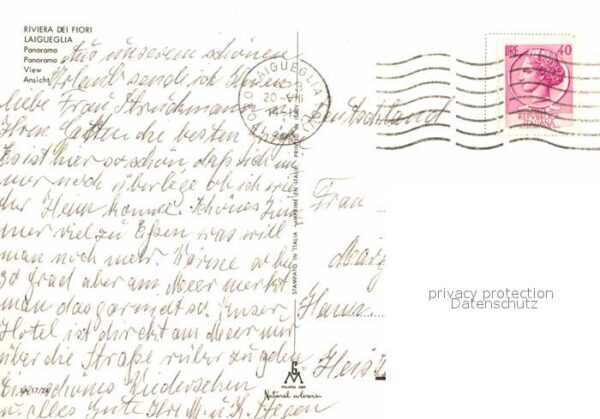 RIVIERA DEI FIORI
LAIGUEGLIA
Panorama
Panorama
View
Ansicht
Aus unserem schönen
Urlaub sende ich Ihnen
liebe Frau Struckmann
Ihren Gatten die besten Grüße
Es ist hier so schön daß ich
nur noch überlege ob ich wie
der Heim komme. Schönes
mer viel zu Essen was will
man noch mehr. Wärme
30 Grad aber am Meer merkt
man das garnicht so. Unser
Hotel ist direkt am Meer nur
über die Straße rüber zu gehen
Ein schönes Wiedersehen
u. alles Gute Ihr M. u. K.
LAIGUEGLIA
20-VIII
STAMPATO IN ITALIA IMPRIME EN ITALIE PRINTED IN ITALY
MILANO
Natural colours
LIRE 40
REPUBBLICA
ITALIANA
Deutschland
Frau
Hann.
privacy protection
Datenschutz